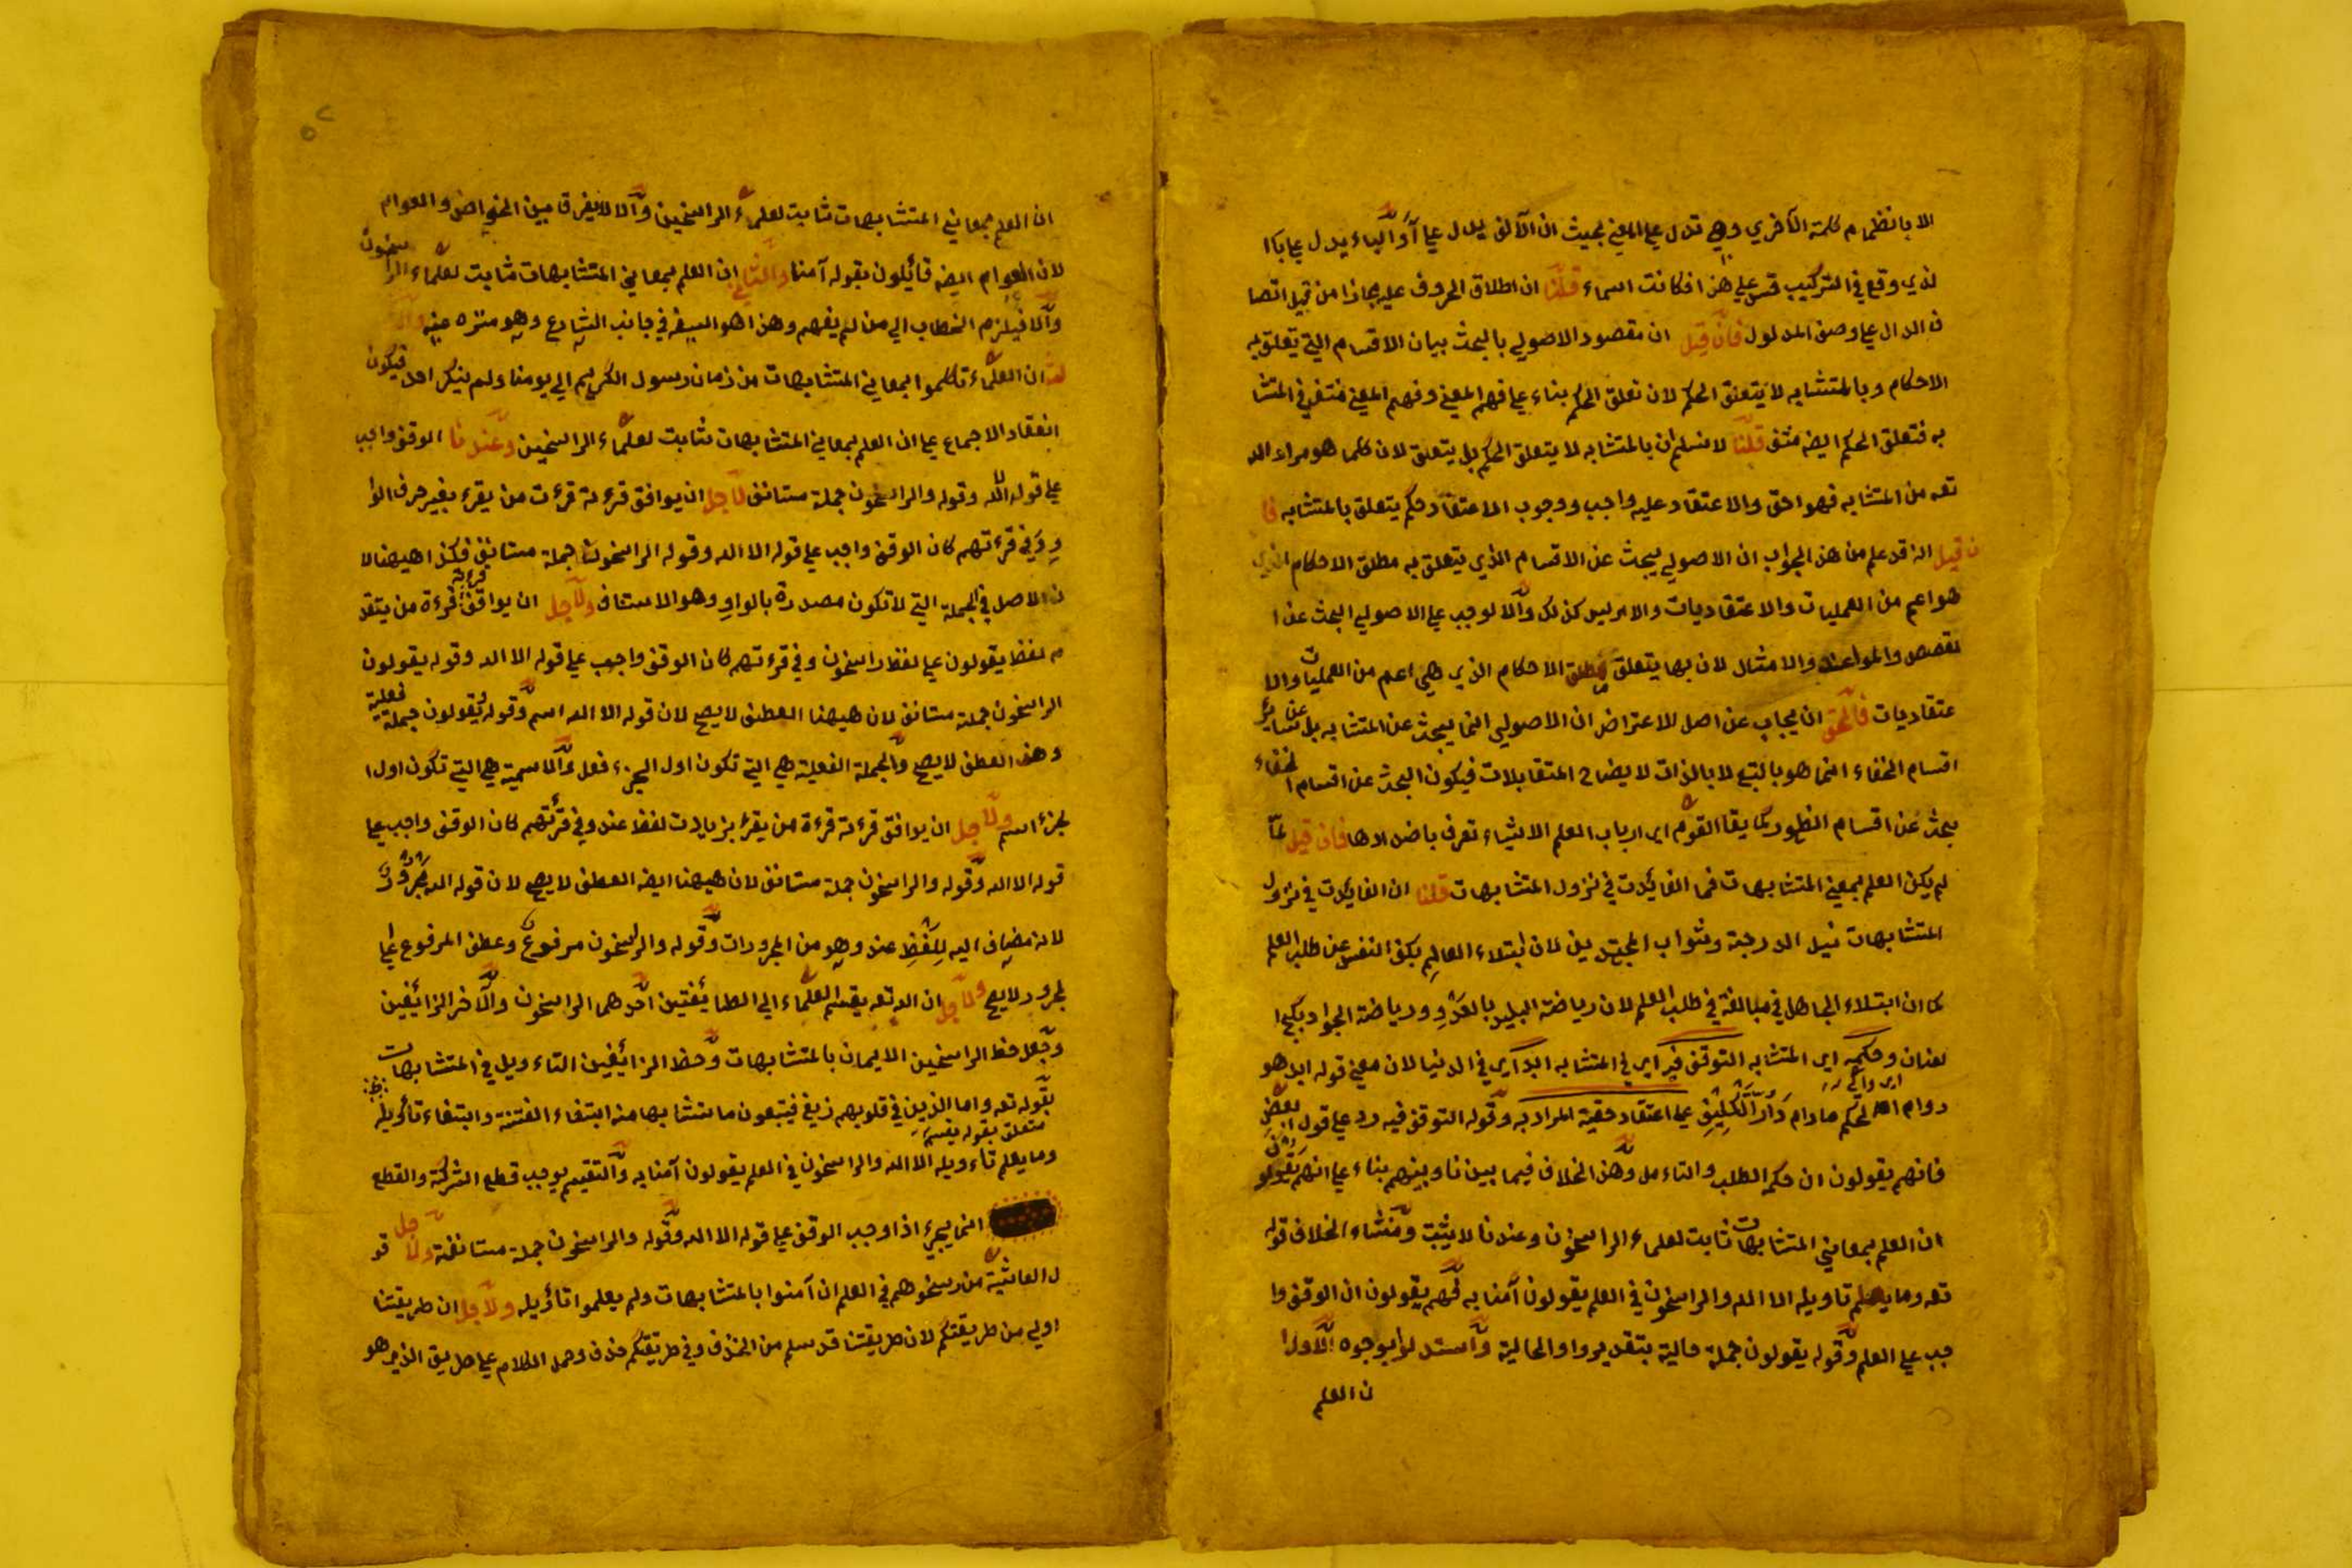 الا بانظمام كلمة الآخري وهي تدل علي المعني بحيث ان الآلف يدل علي آ أوالباء يدل علي باكا
لذي وقع في التركيب قس علي هذا فكانت اسماء قلنا ان اطلاق الحروف عليه مجازا من قبيل اتصا
ف الدال علي وصف المدلول فان قيل ان مقصود الاصولي بالبحث بيان الاقسام التي يتعلق به
الاحكام وبالمتشابه لا يتعلق الحكم لان تعلق الحكم بناء علي فهم المعني وفهم المعني منتفي في المتشا
به فتعلق الحكم ايضه منتف قلنا لا نسلم ان بالمتشابه لا يتعلق الحكم بل يتعلق لان كلما هو مراد الله
تعه من المتشابه فهو احق والاعتقاد عليه واجب ووجوب الاعتقاد حكم يتعلق بالمتشابه فا
ن قيل انه قد علم من هذ الجواب ان الاصولي يبحث عن الاقسام الذي يتعلق به مطلق الاحكام الذي
هو اعم من العمليات والاعتقاديات والامر ليس كذلك والا لوجب علي الاصولي البحث عن ا
لقصص والمواعظ والامثال لان بها يتعلق مطلق الاحكام الذي هي اعم من العمليات والا
عتقاديات فالحق ان يجاب عن اصل الاعتراض ان الاصولي انما يبحث عن المتشابه بل عن سائر
اقسام الخفاء انما هو بالتبع لا بالذات لايضاح المتقابلات فيكون البحث عن اقسام الخفاء
يبحث عن اقسام الظهور كما يقا القوم اي ارباب العلم الاشياء تعرف باضدادها فان قيل لمآ
لم يكن العلم بمعني المتشابهات فما الفائدت في نزول المتشابهات قلنا ان الفايدت في نزول
المتشابهات نيل الدرجة وثواب المجتهدين لان ابتلاء العالم بكف النفس عن طلب العلم
كما ان ابتلاء الجاهل في مبالغة في طلب العلم لان رياضة البليد بالعدو ورياضة الجواد بكبح ا
لعنان وحكمه اي المتشابه التوقف فيه اي في المتشابه ابدا اي في الدنيا لان معني قوله ابد هو
دوام الحكم مادام دار التكليف علي اعتقاد حقية المراد به وقوله التوقف فيه رد علي قول البعض
فانهم يقولون ان حكم الطلب والتاءمل وهذ الخلاف فيما بين نا وبينهم بناء علي انهم يقولون
ان العلم بمعاني المتشابهات ثابت لعلماء الراسخون وعندنا لا يثبت ومنشاء الخلاف قوله
تعه وما يعلم تاويله الا الله والراسخون في العلم يقولون آمنا به فهم يقولون ان الوقف وا
جب علي العلم وقوله يقولون جملة حالية بتقدير واو الحالية واستدلوا بوجوه الاول ا
ن العلم
ان العلم بمعاني المتشابهات ثابت لعلماء الراسخين والا لا يفرق بين الخواص والعوام
لان العوام ايضه قائلون بقوله آمنا والثاني ان العلم بمعاني المتشابهات ثابت لعلماء الراسخون
والا فيلزم الخطاب الي من لم يفهم وهذ اهو السفه في جانب الشارع وهو منزه عنه والثا
لث ان العلماء تكلموا بمعاني المتشابهات من زمان رسول الكريم الي يومنا ولم ينكر احد فيكون
انعقاد الاجماع علي ان العلم بمعاني المتشابهات ثابت لعلماء الراسخين وعندنا الوقف واجب
علي قوله الله وقوله والراسخون جملة مستانف لآجل ان يوافق قرءة قرءت من يقرء بغير حرف الوا
و وفي قرءتهم كان الوقف واجب علي قوله الا الله وقوله الراسخون جملة مستانف فكذ اهيهنا لا
ن الاصل في الجملة التي لا تكون مصدرة بالواو وهو الاستناف ولآجل ان يوافق قرءة قرءة من يتقد
م لفظ يقولون علي لفظ راسخون وفي قرءتهم كان الوقف واجب علي قوله الا الله وقوله يقولون
الراسخون جملة مستانف لان هيهنا العطف لا يصح لان قوله الا الله اسم وقوله يقولون جملة فعلية
وهذ العطف لا يصح والجملة الفعلية هي التي تكون اول الجزء فعلا والاسمية هي التي تكون اول ا
لجزء اسم ولآجل ان يوافق قرءة قرءة من يقرء بزيادت لفظ عند وفي قرءتهم كان الوقف واجب علي
قوله الا الله وقوله والراسخون جملة مستانف لان هيهنا ايضه العطف لا يصح لان قوله الله مجرور
لانه مضاف اليه للفظ عند وهو من المجرورات وقوله والراسخون مرفوع وعطف المرفوع علي ا
لمجرور لا يصح ولآجل ان الله تعه يقسم العلماء الي الطائفتين احدهما الراسخون والآخر الزائغين
وجعل حظ الراسخين الايمان بالمتشابهات وحظ الزائغين التاءويل في المتشابهات
بقوله تعه واما الذين في قلوبهم زيغ فيتبعون ما تشابها منه ابتغاء الفتنة وابتغاء تأويله
متعلق بقوله يقسم
وما يعلم تاءويله الا الله والراسخون في العلم يقولون آمنا به والتقسيم يوجب قطع الشركة والقطع
انما يجيء اذا وجب الوقف علي قوله الا الله وقوله والراسخون جملة مستانفة ولاجل قو
ل العائشة من رسخوهم في العلم ان آمنوا بالمتشابهات ولم يعلموا تأويله ولآجل ان طريقتنا
اولي من طريقتكم لان طريقتنا قد سلم من الحذف وفي طريقتكم حذف وحمل الكلام علي طريق الذي هو